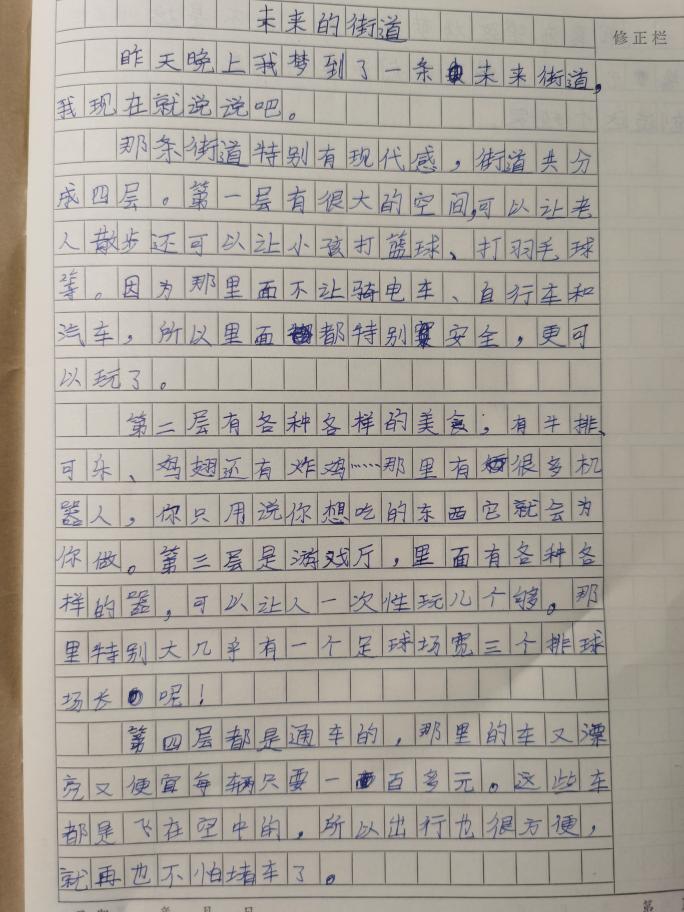 未来的街道
修正栏
昨天晚上我梦到了一条未来街道，
我现在就说说吧。
那条街道特别有现代感，街道共分
成四层。第一层有很大的空间，可以让老
人散步还可以让小孩打蓝球、打羽毛球
等。因为那里面不让骑电车、自行车和
汽车，所以里面都特别安全，更可
以玩了。
第二层有各种各样的美食，有牛排、
可乐、鸡翅还有炸鸡……那里有很多机
器人，你只用说你想吃的东西它就会为
你做。第三层是游戏厅，里面有各种各
样的器，可以让人一次性玩儿个够。那
里特别大几乎有一个足球场宽三个排球
场长呢！
第四层都是通车的，那里的车又漂
亮又便宜每辆只要一百多元。这些车
都是飞在空中的，所以出行也很方便，
就再也不怕堵车了。